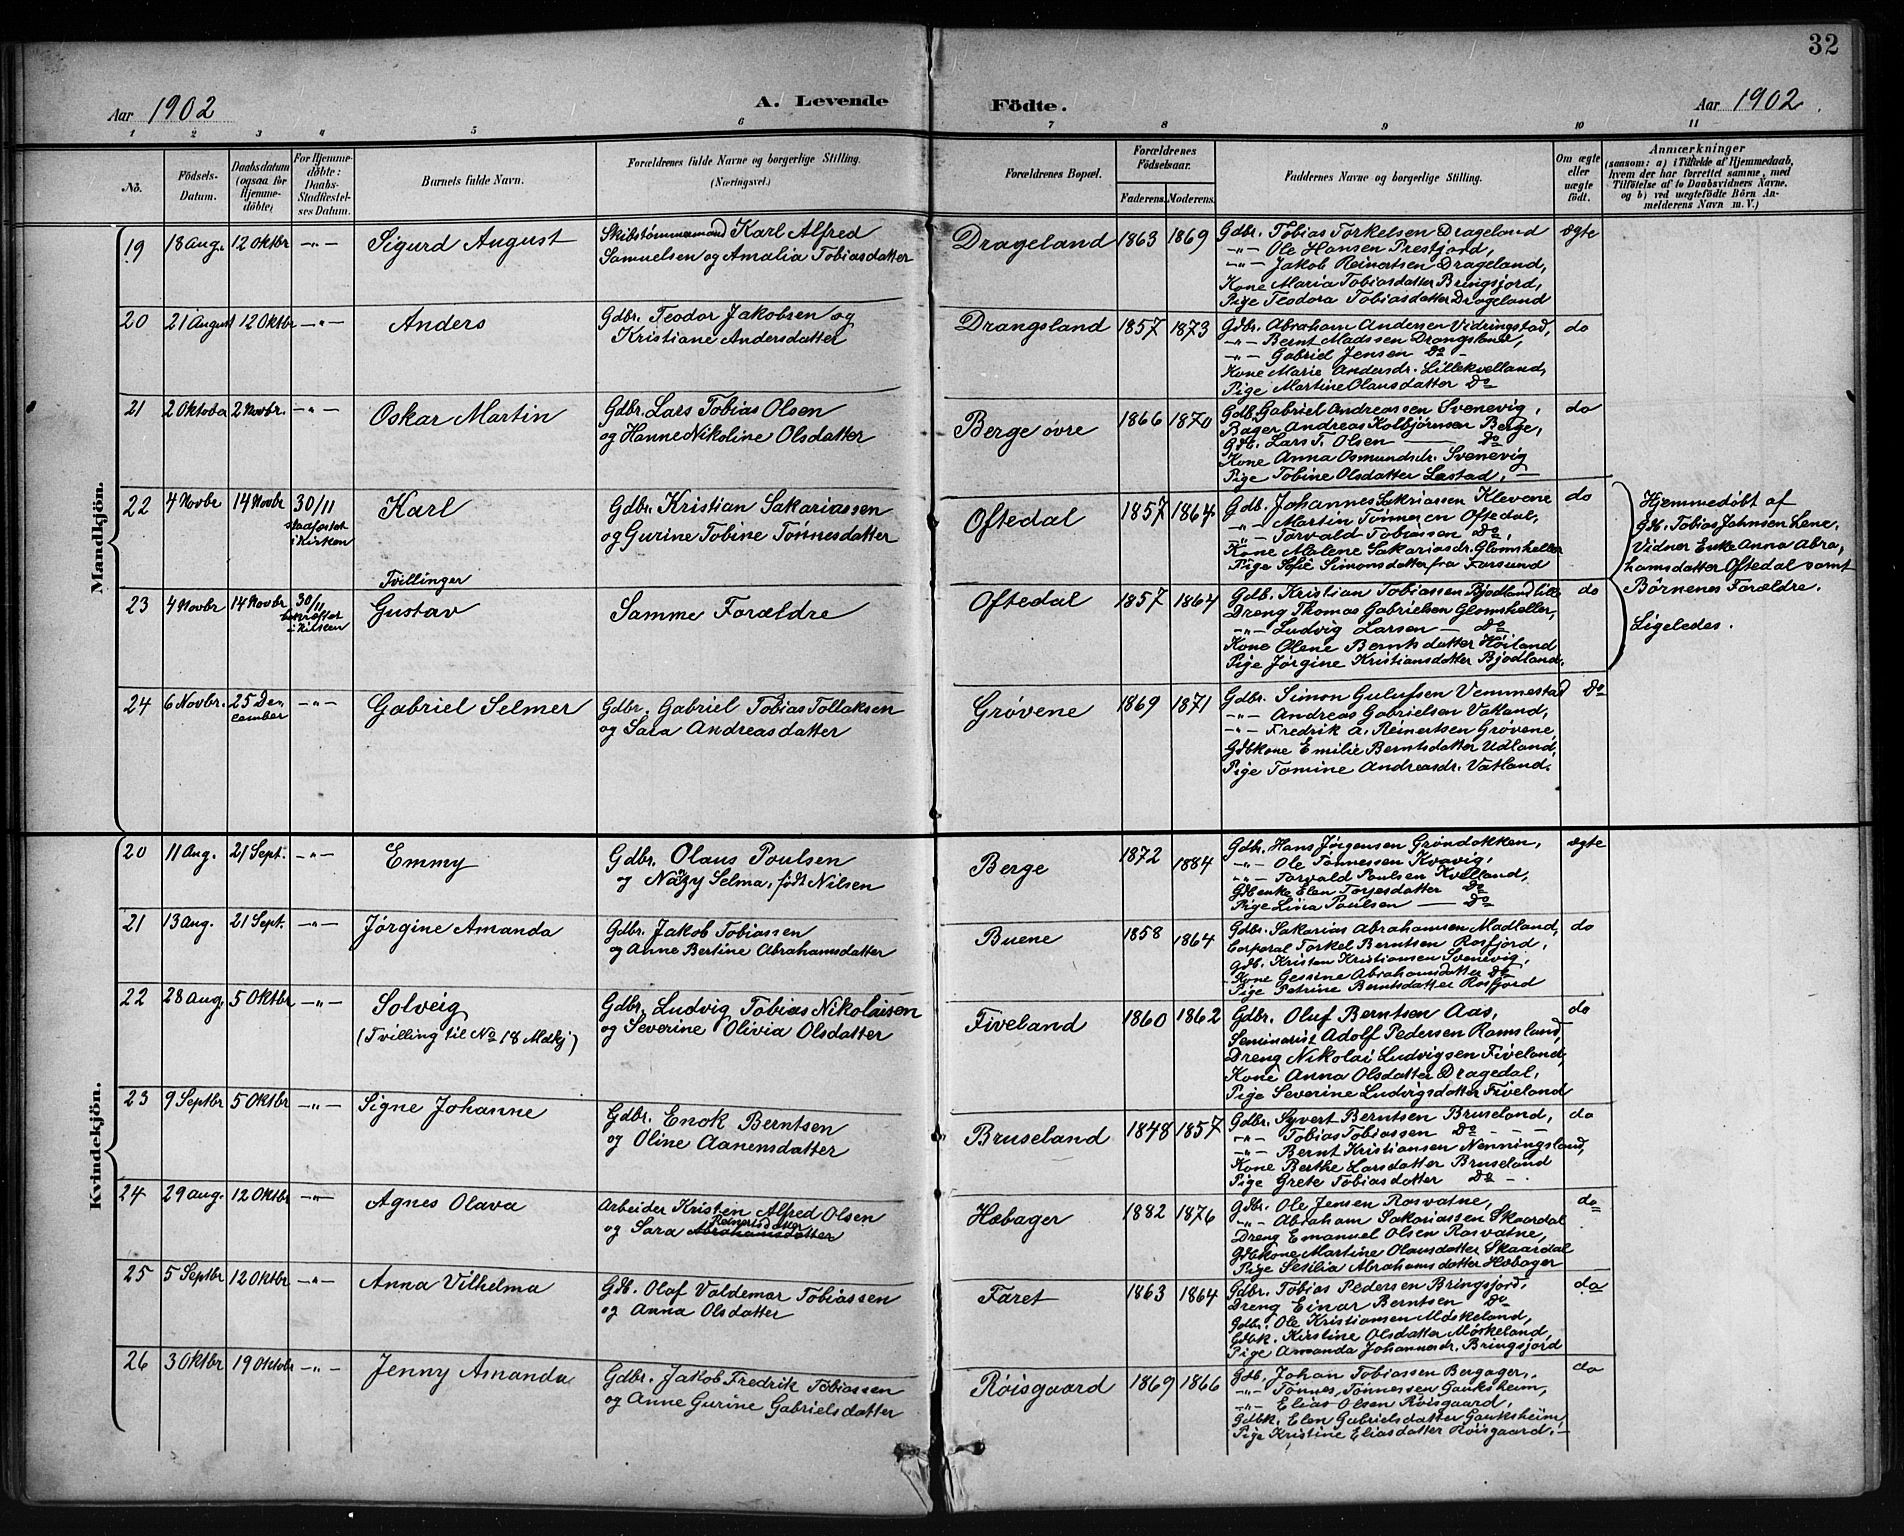 32
Aar 1902
A. Levende Födte.
Aar 1902
1 2 3 4 5 6 7 8 9 10 11
No.
Födsels-Datum.
Daabsdatum (ogsaa for Hjemme-döbte)
For Hjemme-döbte: Daabs-Stadfæstel-ses Datum.
Barnets fulde Navn.
Forældrenes fulde Navne og borgerlige Stilling. (Næringsvei.)
Forældrenes Bopæl.
Forældrenes Födselsaar.
Faderens. Moderens.
Faddernes Navne og borgerlige Stilling.
Om ægte eller uægte födt.
Anmærkninger
(saasom: a) i Tilfælde af Hjemmedaab,
hvem der har forrettet samme, med
Tilföielse af to Daabsvidners Navne.
og b) ved uægtefödte Börn An-
melderens Navn m. V.)
Mandkjön.
19 18 Aug. 12 Oktbr -"- Sigurd August
Skibstømmermand Karl Alfred
Samuelsen og Amalia Tobiasdatter
Drageland 1863 1869
Gdbr. Tobias Torkelsen Drageland
-"- Ole Hansen Prestjord,
-"- Jakob Reinertsen Drageland,
Kone Maria Tobiasdatter Bringsjord,
Pige Teodora Tobiasdatter Drageland
ægte
20 21 August 12 Oktbr -"- Anders
Gdbr. Teodor Jakobsen og
Kristiane Andersdatter
Drangsland 1857 1873
Gdbr. Abraham Andersen Vidringstad,
-"- Bernt Madssen Drangsland,
-"- Gabriel Jensen Do -
Kone Marie Andersdr. Lillekvelland,
Pige Martine Olausdatter Do
do
21 2 Oktober 2 Novbr. -"- Oskar Martin
Gdbr. Lars Tobias Olsen
og Hanne Nikoline Olsdatter
Berge øvre 1866 1870
Gdb. Gabriel Andreassen Svenevig,
Bager Andreas Kolbjørnsen Berge,
Gdb. Lars T. Olsen — Do
Kone Anna Osmundsdr. Svenevig
Pige Tobine Olsdatter Lestad,
do
22 4 Novbr 14 Novbr 30/11 stadfæstet i Kirken
Karl
Gdbr. Kristian Sakariassen
og Gurine Tobine Tønnesdatter
Oftedal 1857 1864
Gdb. Johannes Sakriassen Klevene
-"- Martin Tønnesen Oftedal,
-"- Torvald Tobiassen Do,
Kone Malene Sakariasdr. Glomsheller
Pige Sofie Simonsdatter fra Farsund
do
Hjemmedøbt af
Gdb. Tobias Johnsen Lene.
Vidner Enke Anna Abra-
hamsdatter Oftedal samt
Børnenes Forældre.
Tvillinger
23 4 Novbr 14 Novbr 30/11 bekræftet i Kirken
Gustav
Samme Forældre
Oftedal 1857 1864
Gdb. Kristian Tobiassen Bjodland lille
Dreng Thomas Gabrielsen Glomsheller,
-"- Ludvig Larsen — Do
Kone Olene Berntsdatter Høiland
Pige Jørgine Kristiansdatter Bjodland.
do
Ligeledes.
24 6 Novbr. 25 De-cember -"- Gabriel Selmer
Gdbr. Gabriel Tobias Tollaksen
og Sara Andreasdatter
Grøvene 1869 1871
Gdbr. Simon Gulufsen Vemmestad
-"- Andreas Gabrielsen Vatland,
-"- Fredrik A. Reinertsen Grøvene,
Gdbkone Emilie Berntsdatter Udland,
Pige Tomine Andreasdr. Vatland.
Do
Kvindekjön.
20 11 Aug. 21 Sept. -"- Emmy
Gdbr. Olaus Poulsen
og Näzy Selma, født Nilsen
Berge 1872 1884
Gdbr. Hans Jørgensen Grøndokken,
-"- Ole Tønnessen Kvavig,
-"- Torvald Poulsen Kvelland,
Gdbenke Elen Torjesdatter Do
Pige Lina Poulsen — Do
ægte
21 13 Aug. 21 Sept. -"- Jørgine Amanda
Gdbr. Jakob Tobiassen
og Anne Bertine Abrahamsdatter
Buene 1858 1864
Gdbr. Sakarias Abrahamsen Madland,
Corporal Torkel Berntsen Rosfjord,
Gdb. Kristen Kristiansen Svenevig,
Kone Gessine Abrahamsdatter Do
Pige Petrine Berntsdatter Rosfjord
do
22 28 Aug. 5 Oktbr -"- Solveig
(Tvilling til No 18 Mdkj)
Gdbr. Ludvig Tobias Nikolaisen
og Severine Olivia Olsdatter
Fiveland 1860 1862
Gdbr. Oluf Berntsen Aas,
Seminarist Adolf Pedersen Ramsland,
Dreng Nikolai Ludvigsen Fiveland,
Kone Anna Olsdatter Dragedal,
Pige Severine Ludvigsdatter Fiveland
do
23 9 Septbr 5 Oktbr -"- Signe Johanne
Gdbr. Enok Berntsen
og Oline Aanensdatter
Bruseland 1848 1857
Gdbr. Syvert Berntsen Bruseland,
-"- Tobias Tobiassen Do
-"- Bernt Kristiansen Nenningsland,
Kone Berthe Larsdatter Bruseland
Pige Grete Tobiasdatter Do - .
do
24 29 Aug. 12 Oktbr -"- Agnes Olava
Arbeider Kristen Alfred Olsen
og Sara Abrahamsdatter Reinertsdatter
Hæbager 1882 1876
Gdbr. Ole Jensen Rosvatne,
-"- Abraham Sakariassen Skaardal
Dreng Emanuel Olsen Rosvatne,
Gdbkone Martine Olausdatter Skaardal
Pige Sesilia Abrahamsdatter Hæbager
do
25 5 Septbr 12 Oktbr -"- Anna Vilhelma
Gdb. Olaf Valdemar Tobiassen
og Anna Olsdatter
Faret 1863 1864
Gdbr. Tobias Pedersen Bringsjord,
Dreng Einar Berntsen Do
Gdbr. Ole Kristiansen Møskeland,
Gdbk. Kirstine Olsdatter Møskeland,
Pige Amanda Johannesdr. Bringsjord
do
26 3 Oktbr 19 Oktobr -"- Jenny Amanda
Gdbr. Jakob Fredrik Tobiassen
og Anne Gurine Gabrielsdatter
Røisgaard 1869 1866
Gdb. Johan Tobiassen Bergager,
-"- Tønnes Tønnessen Gauksheim,
-"- Elias Olsen Røisgaard,
Gdbk. Elen Gabrielsdatter Gauksheim,
Pige Kristine Eliasdatter Røisgaard.
do